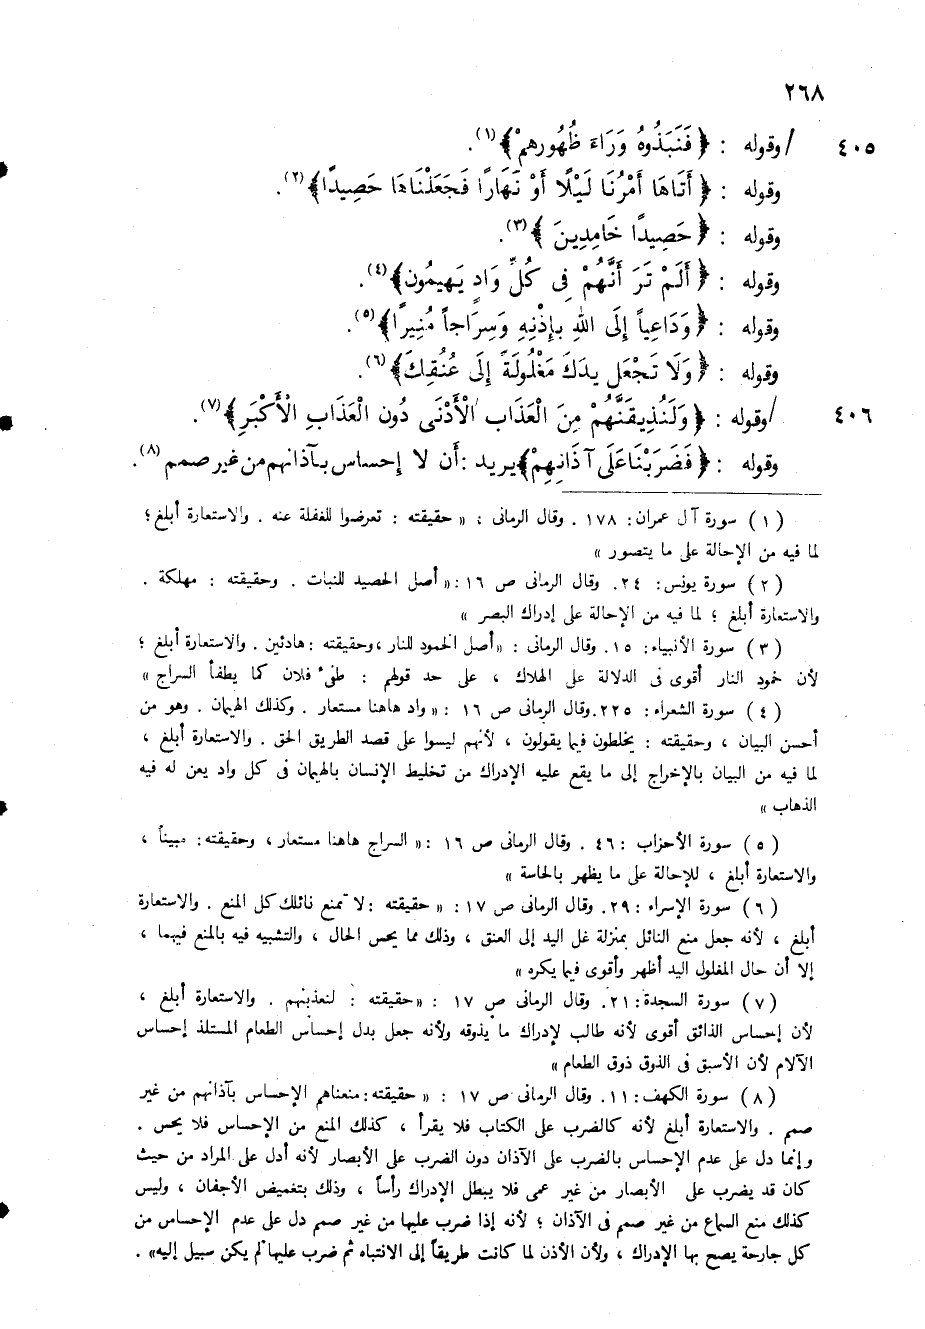 ٢٦٨
٤٠٥ / وقوله : ﴿ فَنَبَذُوهُ وَرَاءَ ظُهُورِهِمْ ﴾(١).
وقوله : ﴿ أَتَاهَا أَمْرُنَا لَيْلًا أَوْ نَهَارًا فَجَعَلْنَاهَا حَصِيدًا ﴾(٢).
وقوله : ﴿ حَصِيدًا خَامِدِينَ ﴾(٣).
وقوله : ﴿ أَلَمْ تَرَ أَنَّهُمْ فِى كُلِّ وَادٍ يَهِيمُونَ ﴾(٤).
وقوله : ﴿ وَدَاعِياً إِلَى اللهِ بِإِذْنِهِ وَسِرَاجاً مُنِيرًا ﴾(٥).
وقوله : ﴿ وَلَا تَجْعَلْ يدَكَ مَغْلُولَةً إِلَى عُنُقِكَ ﴾(٦).
٤٠٦ / وقوله : ﴿ وَلَنُذِيقَنَّهُمْ مِنَ الْعَذَابِ الْأَدْنَى دُونَ الْعَذَابِ الْأَكْبَرِ ﴾(٧).
وقوله : ﴿ فَضَرَبْنَا عَلَى آذَانِهِمْ ﴾ يريد : أن لا إحساس بآذانهم من غير صمم(٨).
(١) سورة آل عمران: ١٧٨ . وقال الرمانى : « حقيقته : تعرضوا للغفلة عنه . والاستعارة أبلغ ؛
لما فيه من الإحالة على ما يتصور »
(٢) سورة يونس: ٢٤. وقال الرمانى ص ١٦ :« أصل الحصيد للنبات . وحقيقته : مهلكة .
والاستعارة أبلغ ؛ لما فيه من الإحالة على إدراك البصر »
(٣) سورة الأنبياء: ١٥. وقال الرمانى : «أصل الخمود للنار ، وحقيقته : هادئين . والاستعارة أبلغ ؛
لأن خمود النار أقوى فى الدلالة على الهلاك ، على حد قولهم : طفئ فلان كما يطفأ السراج »
(٤) سورة الشعراء: ٢٢٥. وقال الرمانى ص ١٦ : « واد هاهنا مستعار . وكذلك الهيمان . وهو من
أحسن البيان ، وحقيقته : يخلطون فيما يقولون ، لأنهم ليسوا على قصد الطريق الحق . والاستعارة أبلغ ،
لما فيه من البيان بالإخراج إلى ما يقع عليه الإدراك من تخليط الإنسان بالهيمان فى كل واد يعن له فيه
الذهاب »
(٥) سورة الأحزاب : ٤٦ . وقال الرمانى ص ١٦ :« السراج هاهنا مستعار ، وحقيقته: مبيناً ،
والاستعارة أبلغ ، للإحالة على ما يظهر بالحاسة »
(٦) سورة الإسراء : ٢٩. وقال الرمانى ص ١٧ : « حقيقته : لا تمنع نائلك كل المنع . والاستعارة
أبلغ ، لأنه جعل منع النائل بمنزلة غل اليد إلى العنق ، وذلك مما يحس الحال ، والتشبيه فيه بالمنع فيهما ،
إلا أن حال المغلول اليد أظهر وأقوى فيما يكره »
(٧) سورة السجدة : ٢١. وقال الرمانى ص ١٧ : «حقيقته : لنعذبنهم . والاستعارة أبلغ ،
لأن إحساس الذائق أقوى لأنه طالب لإدراك ما يذوقه ولأنه جعل بدل إحساس الطعام المستلذ إحساس
الآلام لأن الأسبق فى الذوق ذوق الطعام »
(٨) سورة الكهف : ١١. وقال الرمانى ص ١٧ : « حقيقته : منعناهم الإحساس بآذانهم من غير
صمم . والاستعارة أبلغ لأنه كالضرب على الكتاب فلا يقرأ ، كذلك المنع من الإحساس فلا يحس .
وإنما دل على عدم الإحساس بالضرب على الآذان دون الضرب على الأبصار لأنه أدل على المراد من حيث
كان قد يضرب على الأبصار من غير عمى فلا يبطل الإدراك رأساً ، وذلك بتغميض الأجفان ، وليس
كذلك منع السماع من غير صمم فى الآذان ؛ لأنه إذا ضرب عليها من غير صمم دل على عدم الإحساس من
كل جارحة يصح بها الإدراك ، ولأن الأذن لما كانت طريقاً إلى الانتباه ثم ضرب عليها لم يكن سبيل إليه» .